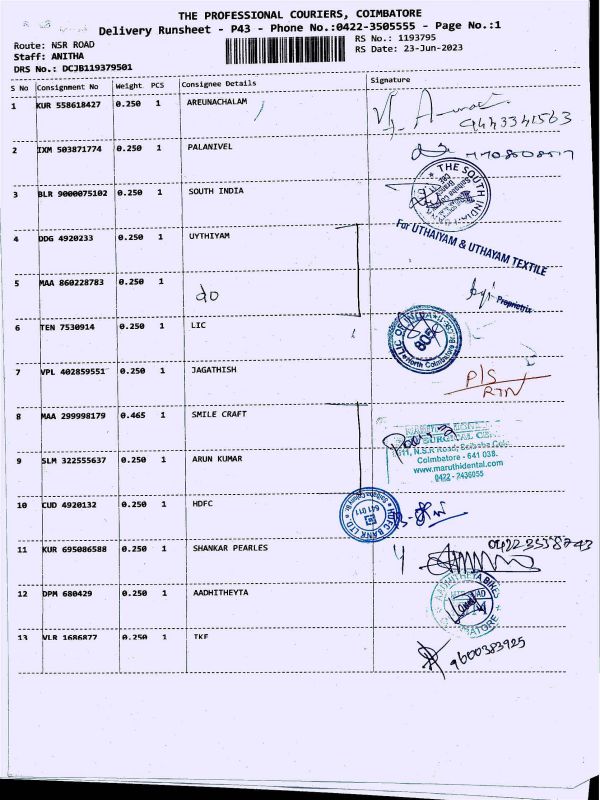 THE PROFESSIONAL COURIERS, COIMBATORE
Delivery Runsheet - P43 - Phone No.:0422-3505555 - Page No.:1
Route: NSR ROAD
RS No.: 1193795
Staff: ANITHA
RS Date: 23-Jun-2023
DRS No.: DCJB119379501
S No Consignment No Weight PCS Consignee Details Signature
1 KUR 558618427 0.250 1 AREUNACHALAM
9443341563
2 IXM 503871774 0.250 1 PALANIVEL
3 BLR 9000075102 0.250 1 SOUTH INDIA
THE SOUTH INDIA
For UTHAIYAM & UTHAYAM TEXTILE
4 DDG 4920233 0.250 1 UYTHIYAM
5 MAA 860228783 0.250 1 do
Proprietrix
6 TEN 7530914 0.250 1 LIC
LIC OF INDIA
805
North Coimbatore
7 VPL 402859551 0.250 1 JAGATHISH
P/S
RTN
8 MAA 299998179 0.465 1 SMILE CRAFT
SURGICAL
N.S.R Road, Saibaba
Coimbatore - 641 038.
www.maruthidental.com
0422 - 2436055
9 SLM 322555637 0.250 1 ARUN KUMAR
10 CUD 4920132 0.250 1 HDFC
HDFC BANK LTD
641 011
11 KUR 695086588 0.250 1 SHANKAR PEARLES
0422 3558743
12 DPM 680429 0.250 1 AADHITHEYTA
AADHITHEYA BIKES
13 VLR 1686877 0.250 1 TKF
9600383925